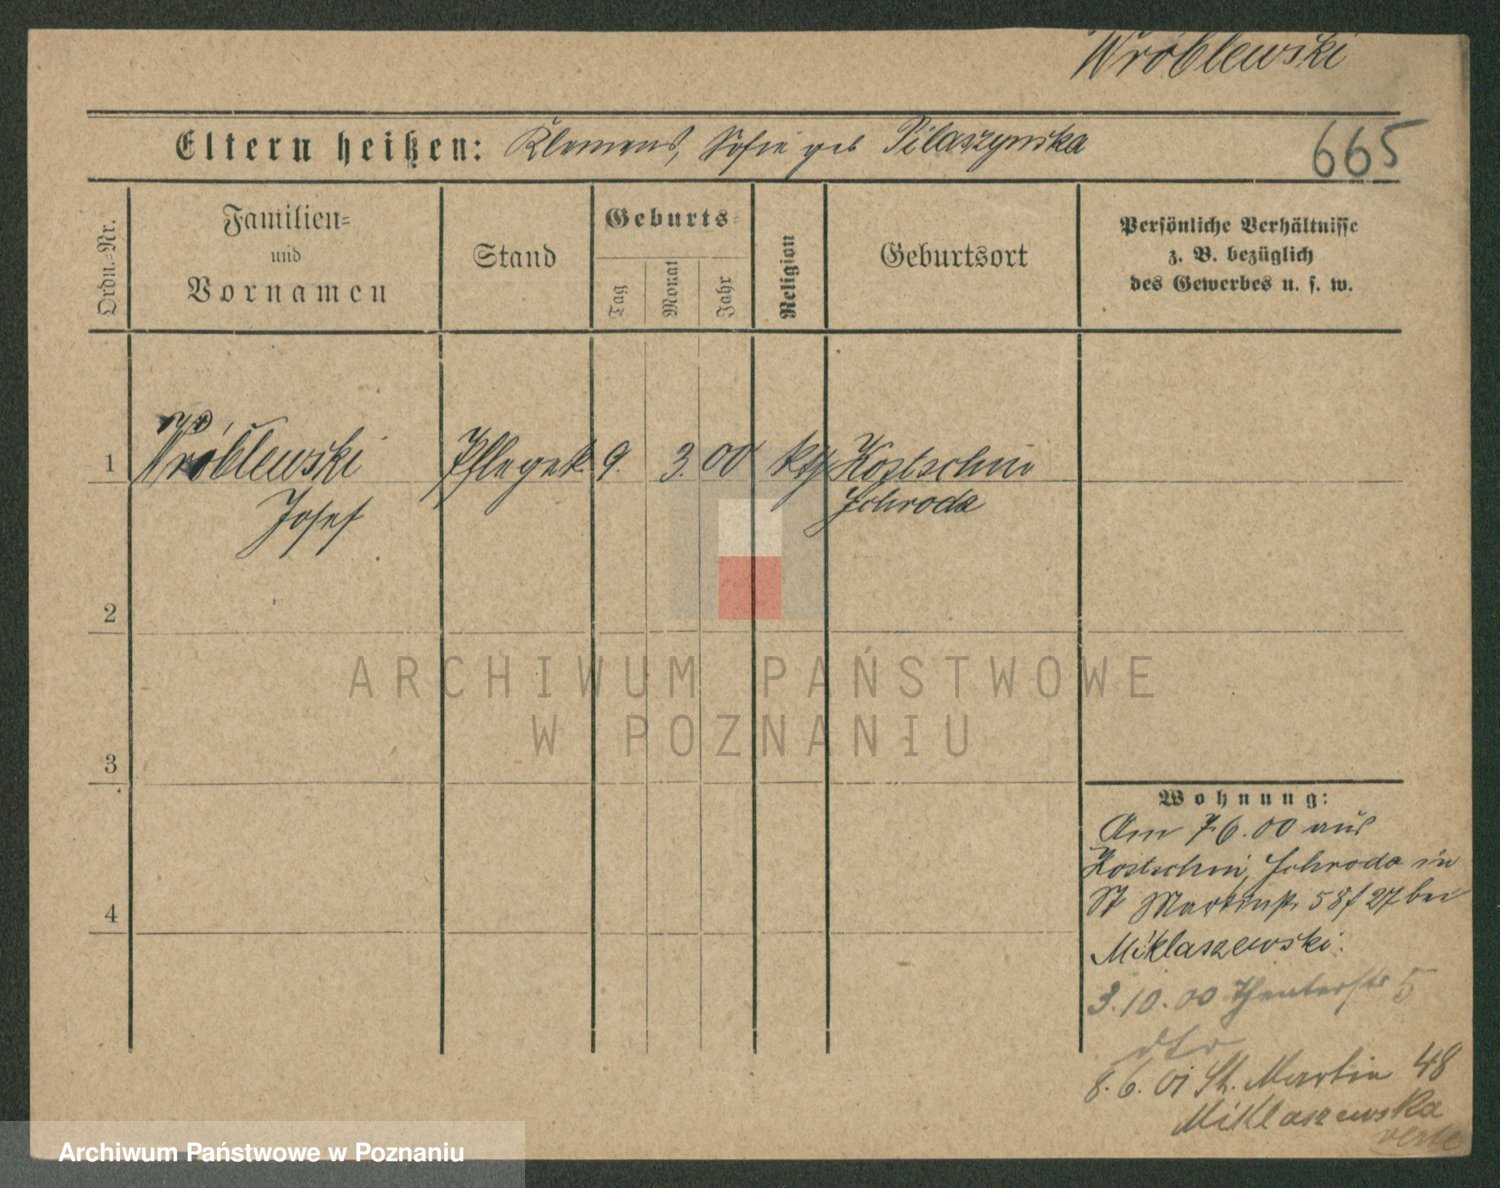 Wróblewski
Eltern heißen: Klemens, Sofie geb Pilaszynska
665
Ordn.-Nr.
Familien-
und
Vornamen
Stand
Geburts-
Tag
Monat
Jahr
Religion
Geburtsort
Persönliche Verhältnisse
z. B. bezüglich
des Gewerbes u. s. w.
1 Wróblewski Pflegek 9. 3. 00 kth Kostschin
Josef Schroda
2
3
4
ARCHIWUM PAŃSTWOWE
W POZNANIU
Wohnung:
Am 7.6.00 aus
Kostschin, Schroda in
St Martinstr 58 f 27 bei
Miklaszewski.
3.10.00 Theaterstr 5
dto
8.6.01 St. Martin 48
Miklaszewska
verte
Archiwum Państwowe w Poznaniu